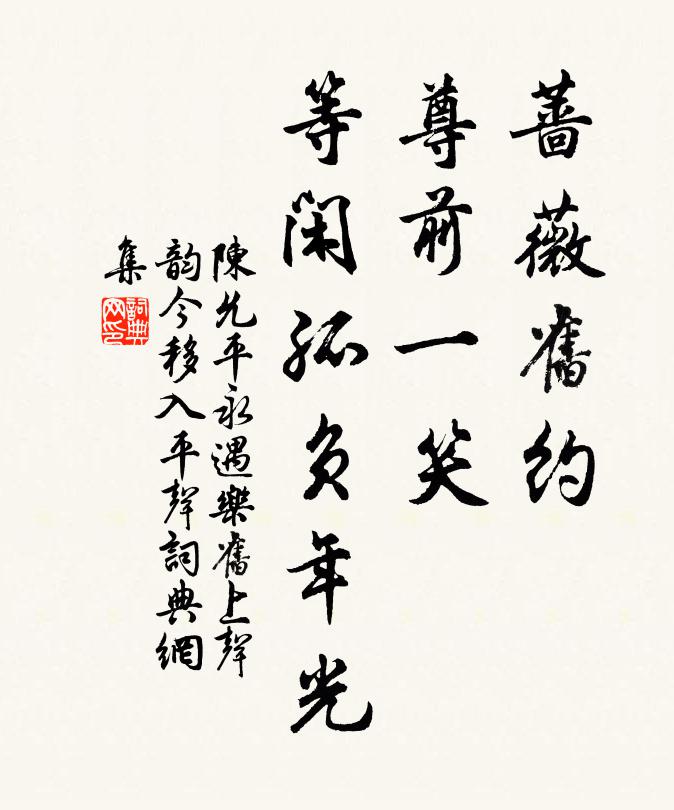 蔷薇舊约
尊前一笑
等闲孤负年光
陳允平永遇樂舊上聲
韵今移入平聲詞典網
集
詞典
网印